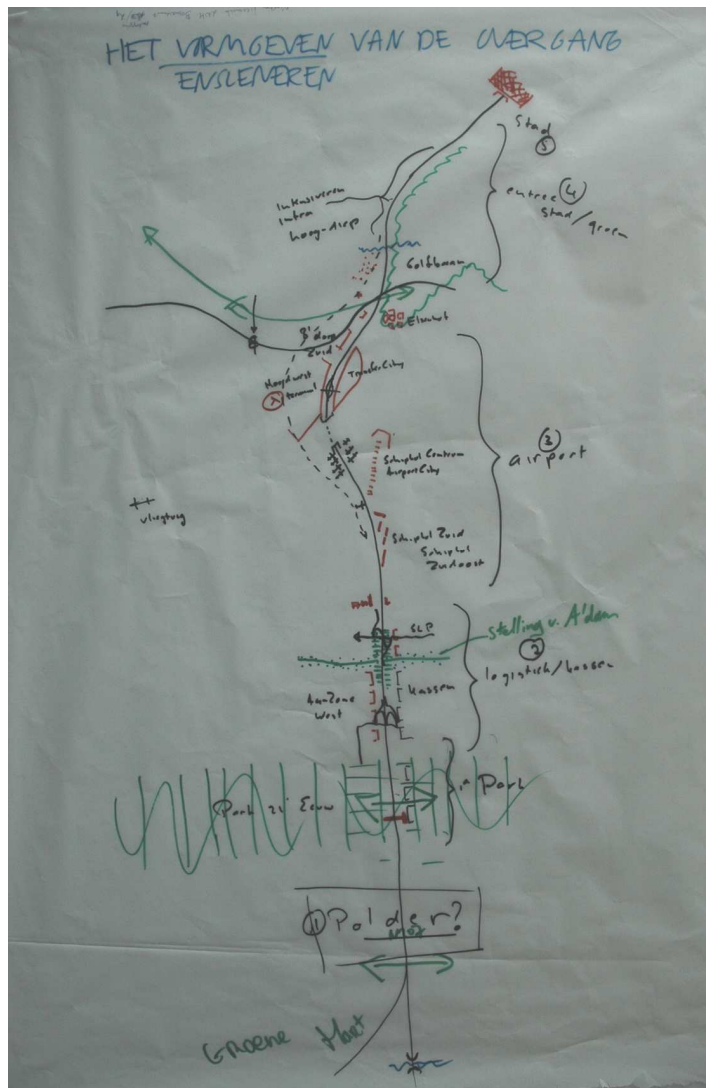 HET VORMGEVEN VAN DE OVERGANG
ENSCENEREN
Stad
5
entree 4
stad/groen
intensiveren
intra
hoog-diep
Golfbaan
Elzenhof
B'dorp
Zuid
Noordwest
terminal
Transfer City
Schiphol Centrum
Airport City
3
airport
vliegtuig
Schiphol Zuid
Schiphol
Zuidoost
SLP
Stelling v. A'dam
2
logistiek/kassen
Kassen
West
Park 21e Eeuw
Park
1 Polder?
Groene Hart